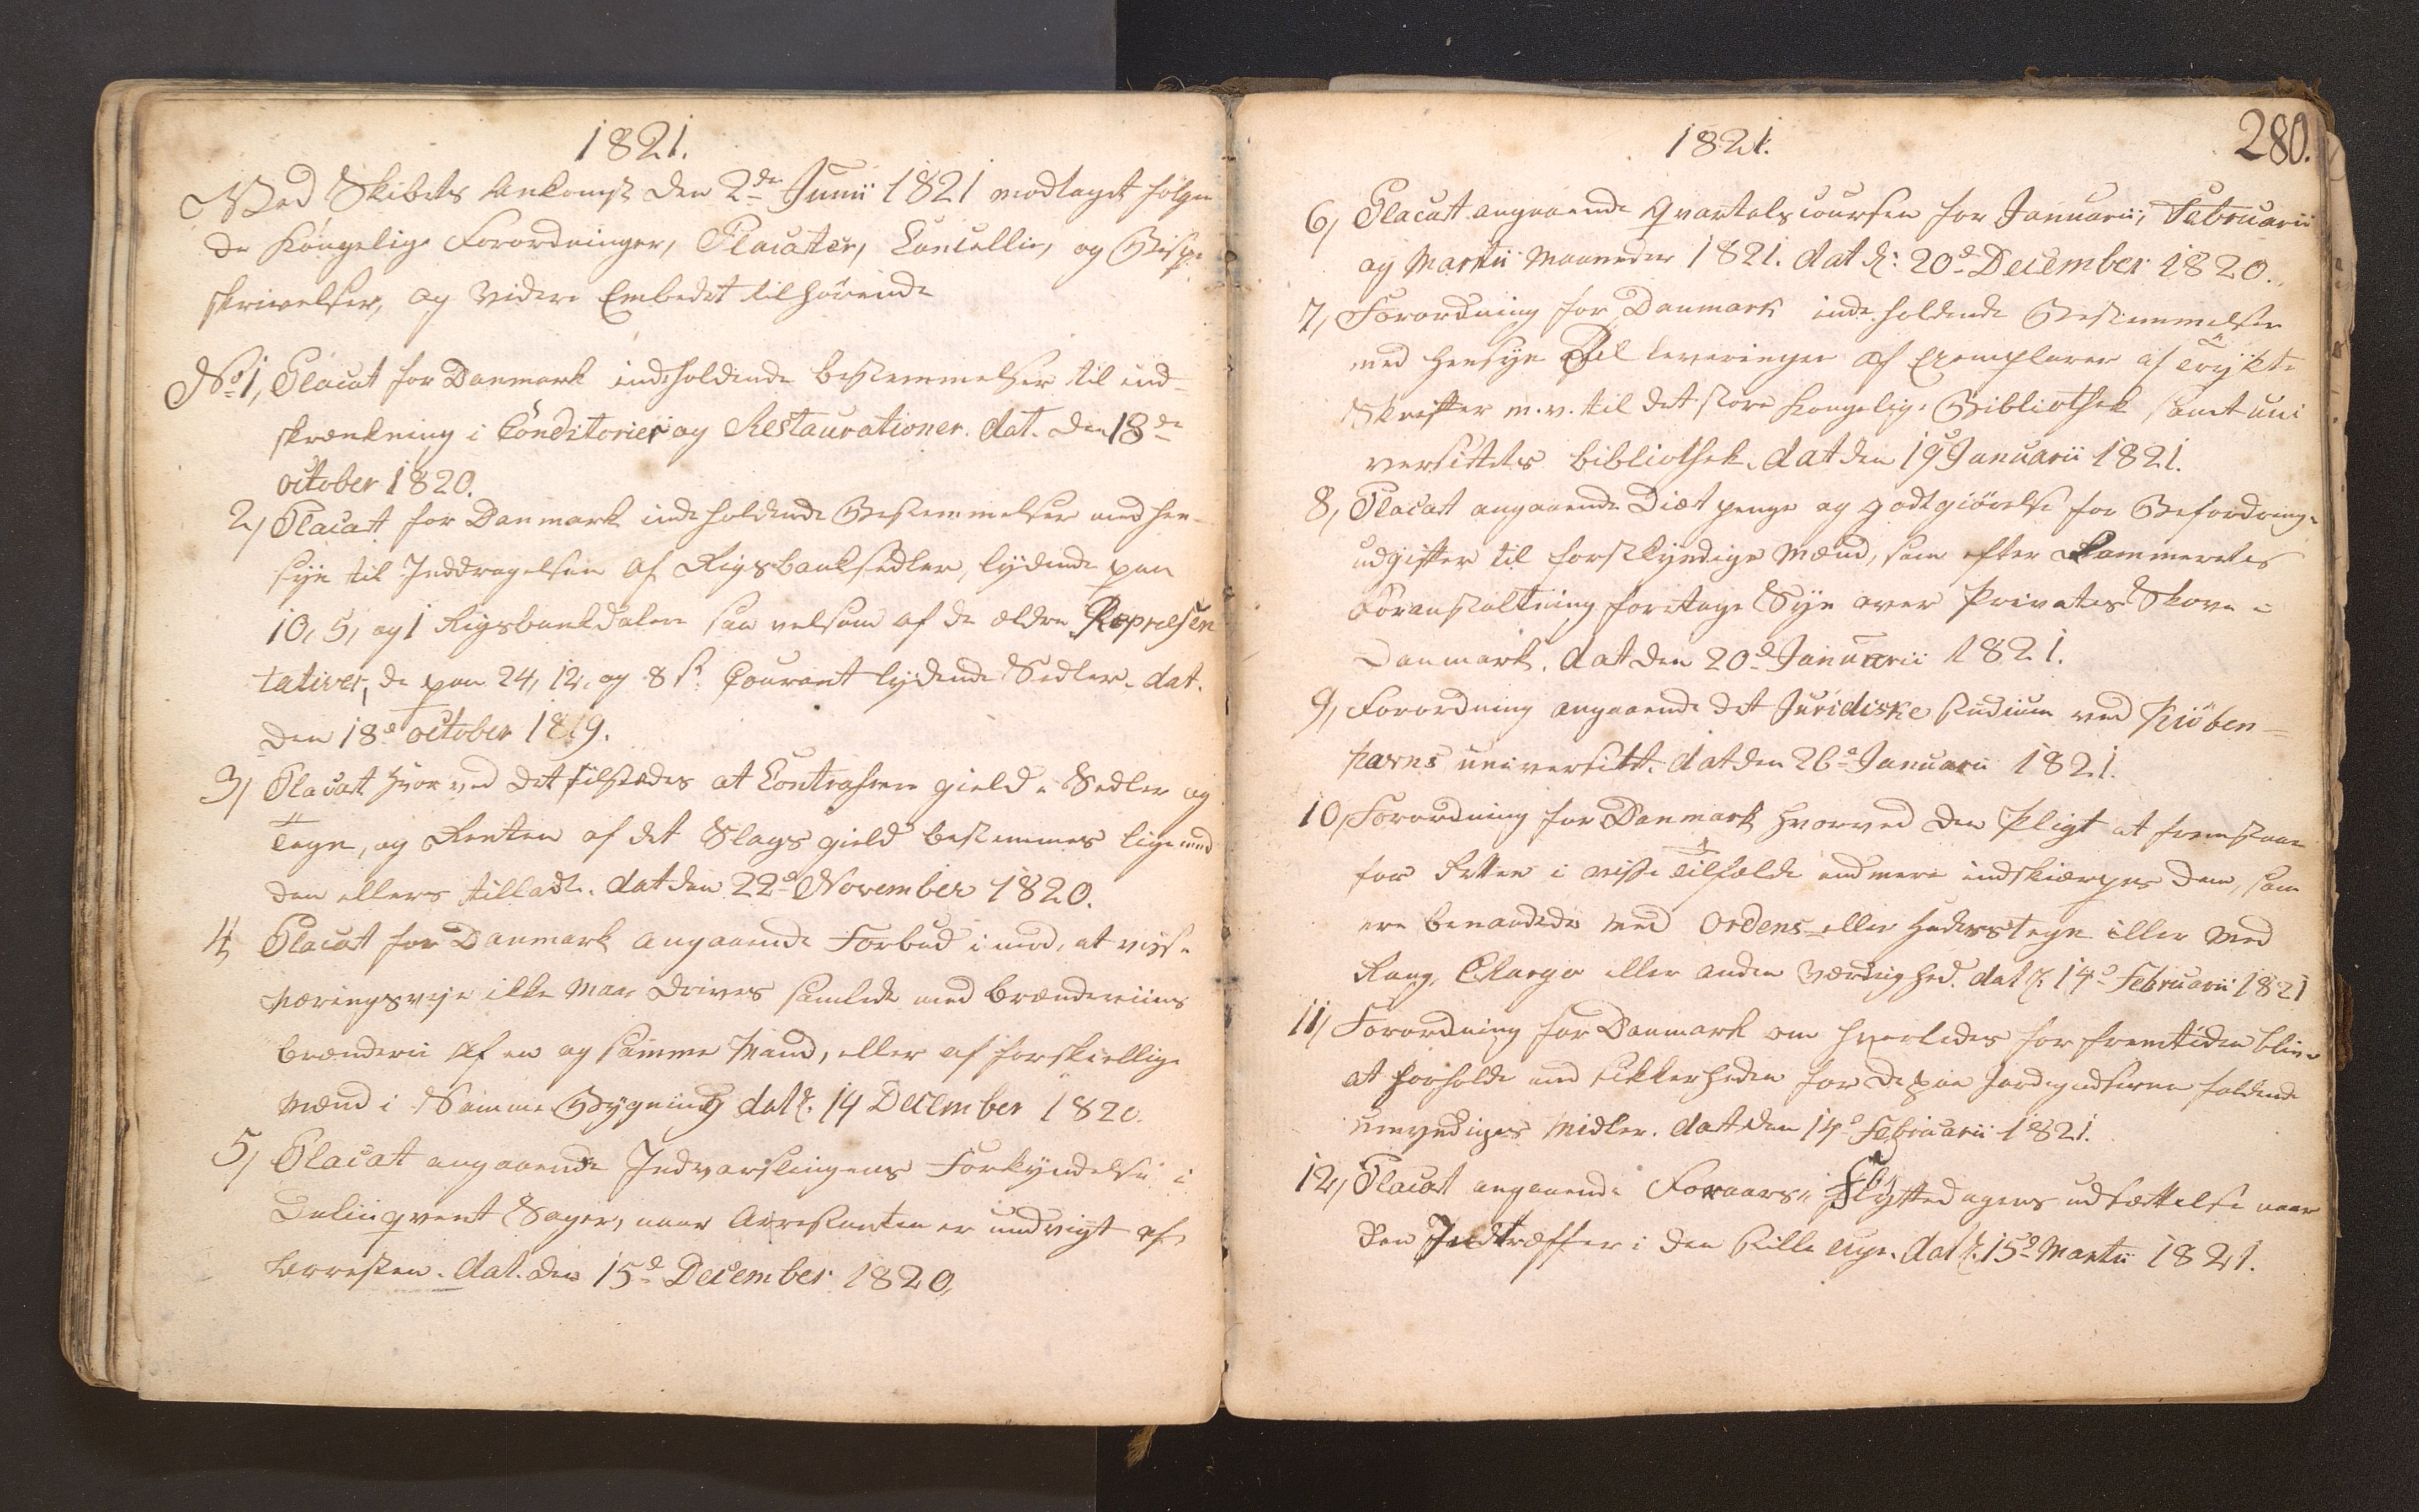 1821.
Med Skibets Ankomst den 2de Junii 1821 modtaget følgen
de Kongelige Forordninger, Placater, Cancellie, og Bispe
skrivelser, og videre Embedet tilhørende
No 1, Placat for Danmark indeholdende bestemmelser til ind-
skrænkning i Conditorier og Restaurationer. dat. den 18de
October 1820.
2, Placat for Danmark indeholdende Bestemmelser med hen-
syn til Inddragelsen af Rigsbanksedler, lydende paa
10, 5, og 1 Rigsbankdaler saa velsom af de ældre Repræsen
tativer, de paa 24, 12, og 8 s. Courant lydende Sedler. dat.
den 18d October 1819.
3, Placat hvor ved det tilstædes at Contrahere gield i Sedler og
Tegn, og Renten af det Slags gield bestemmes lige med
den ellers tilladte. dat den 22d November 1820.
4, Placat for Danmark angaaende Forbud imod, at visse
Næringsveje ikke maae drives samlede med brændeviins
brænderie af en og samme Mand, eller af forskiellige
Mænd i Samme Bygning dat d. 14 December 1820.
5, Placat angaaende Indvarslingens Forkyndelse i
Delinqvent Sager, naar Arrestanten er undvigt af
Arresten. dat. den 15d December 1820,
1821.
280.
6, Placat angaaende Qvartalscoursen for Januarii, Februarii
og Martii Maaneder 1821. dat d: 20d December 1820.
7, Forordning for Danmark indeholdende Bestemmelser
med Hensyn Til Leveringer af Exemplarer af Trykte
Skrifter m. v. til det store Kongelige Bibliothek samt uni
versitets bibliothek. dat den 19d Januarii 1821.
8, Placat angaaende Diæt penge og godtgiørelse for Befordrings
udgifter til forstkyndige Mænd, som efter Kammerets
Foranstaltning foretage Syn over Privates Skove i
Danmark. dat den 20d Januarii 1821.
9, Forordning angaaende det Juridiske studium ved Kiöben-
havns universitet. dat den 26d Januarii 1821.
10, Forordning for Danmark hvorved den Pligt at fremstaae
for Retten i visse Tilfælde end mere indskiærpes dem, som
ere benaadede med Ordens eller Hæderstegn eller med
Rang, Charge eller anden Værdighed. dat d. 14d Februarii 1821
11, Forordning for Danmark om hvorledes for fremtiden bliver
at forholde med sikkerheden for de paa Jordegodserne heftende
umyndiges Midler. dat den 14d Februarii 1821.
12, Placat angaaende Foraars Flyttedagens udsættelse naar
den Indtræffer i den stille uge. dat d. 15d Martii 1821.